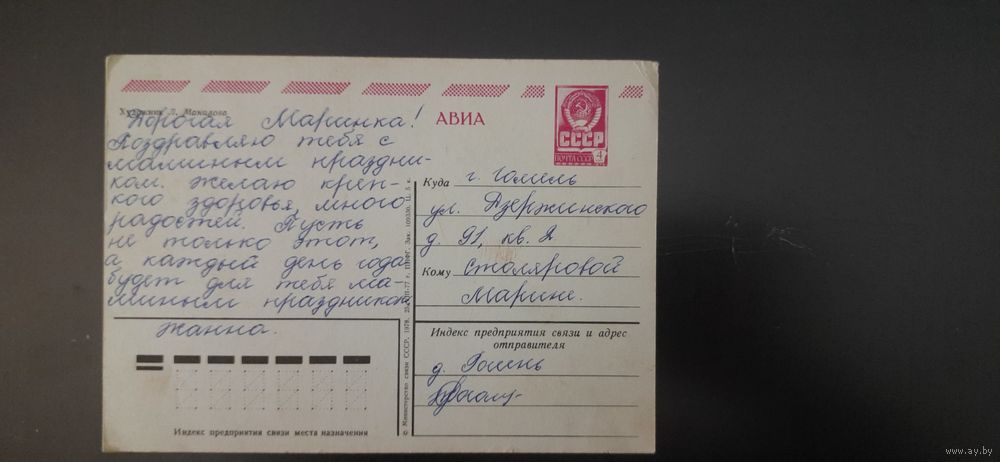 Художник Л. Манилова
Дорогая Маринка!
Поздравляю тебя с
маминым праздни-
ком. Желаю креп-
кого здоровья, много
радостей. Пусть
не только этот,
а каждый день года
будет для тебя ма-
миным праздником
Жанна.
Индекс предприятия связи места назначения
© Министерство связи СССР. 1978.
АВИА
СССР
ПОЧТА СССР
4
Куда г. Гомель
ул. Дзержинского
д. 91, кв. 2
Кому Столяровой
Марине.
Индекс предприятия связи и адрес
отправителя
д.
www.ay.by